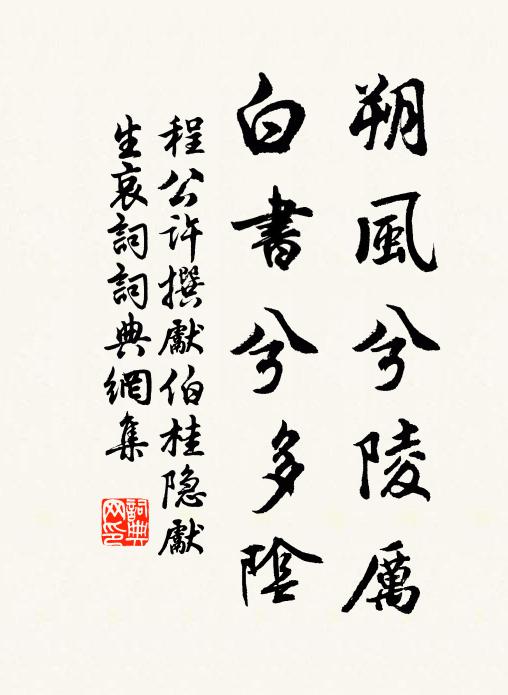 朔風兮陵厲
白書兮多陰
程公許撰獻伯桂隐獻
生哀詞詞典網集
詞典网印